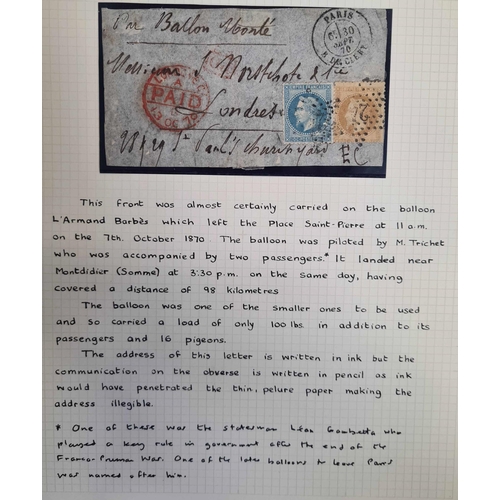 Par Ballon Monté
PARIS
30
70
R. DE CLERY
PAID
Messieurs J. Horstchote & Cie
Londres
28 & 29 St Paul's Churchyard
EMPIRE FRANÇAIS
This front was almost certainly carried on the balloon
L'Armand Barbès which left the Place Saint-Pierre at 11 a.m.
on the 7th. October 1870. The balloon was piloted by M. Trichet
who was accompanied by two passengers.* It landed near
Montdidier (Somme) at 3:30 p.m. on the same day, having
covered a distance of 98 kilometres
The balloon was one of the smaller ones to be used
and so carried a load of only 100 lbs. in addition to its
passengers and 16 pigeons.
The address of this letter is written in ink but the
communication on the obverse is written in pencil as ink
would have penetrated the thin, pelure paper making the
address illegible.
* One of these was the statesman Léon Gambetta who
played a key rule in government after the end of the
Franco-Prussian War. One of the later balloons to leave Paris
was named after him.